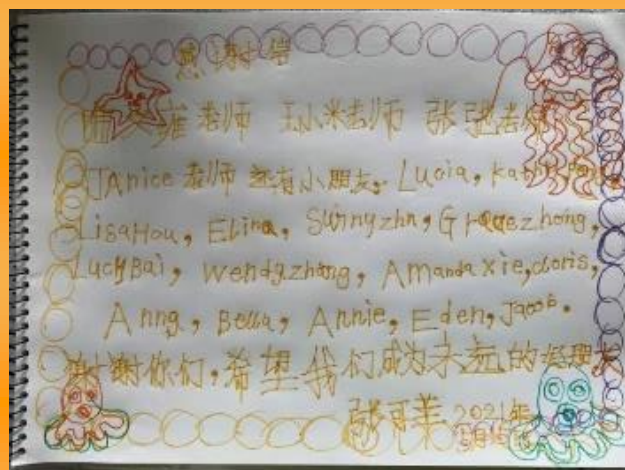 感谢信
雍老师 王小米老师 张弛老师
JAnice 老师 还有小朋友: Lucia, Kathy
LisaHou, Elina, Sunnyzhn, Gracezhong,
LucyBai, Wendyzhang, Amandaxie, cloris,
Anna, Bella, Annie, Eden, Jacob.
谢谢你们,希望我们成为永远的好朋友
张可 2021年